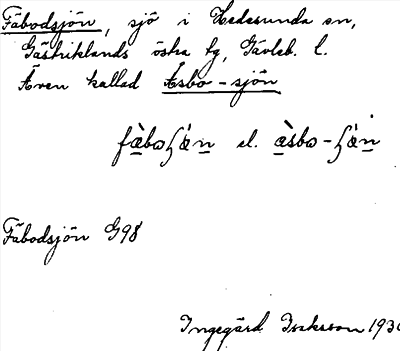 Fäbodsjön, sjö i Hedesunda sn,
Gästriklands östra tg, Gävleb. l.
Även kallad Åsbo-sjön
el.
Fäbodsjön G98
Ingegärd Isaksson 193